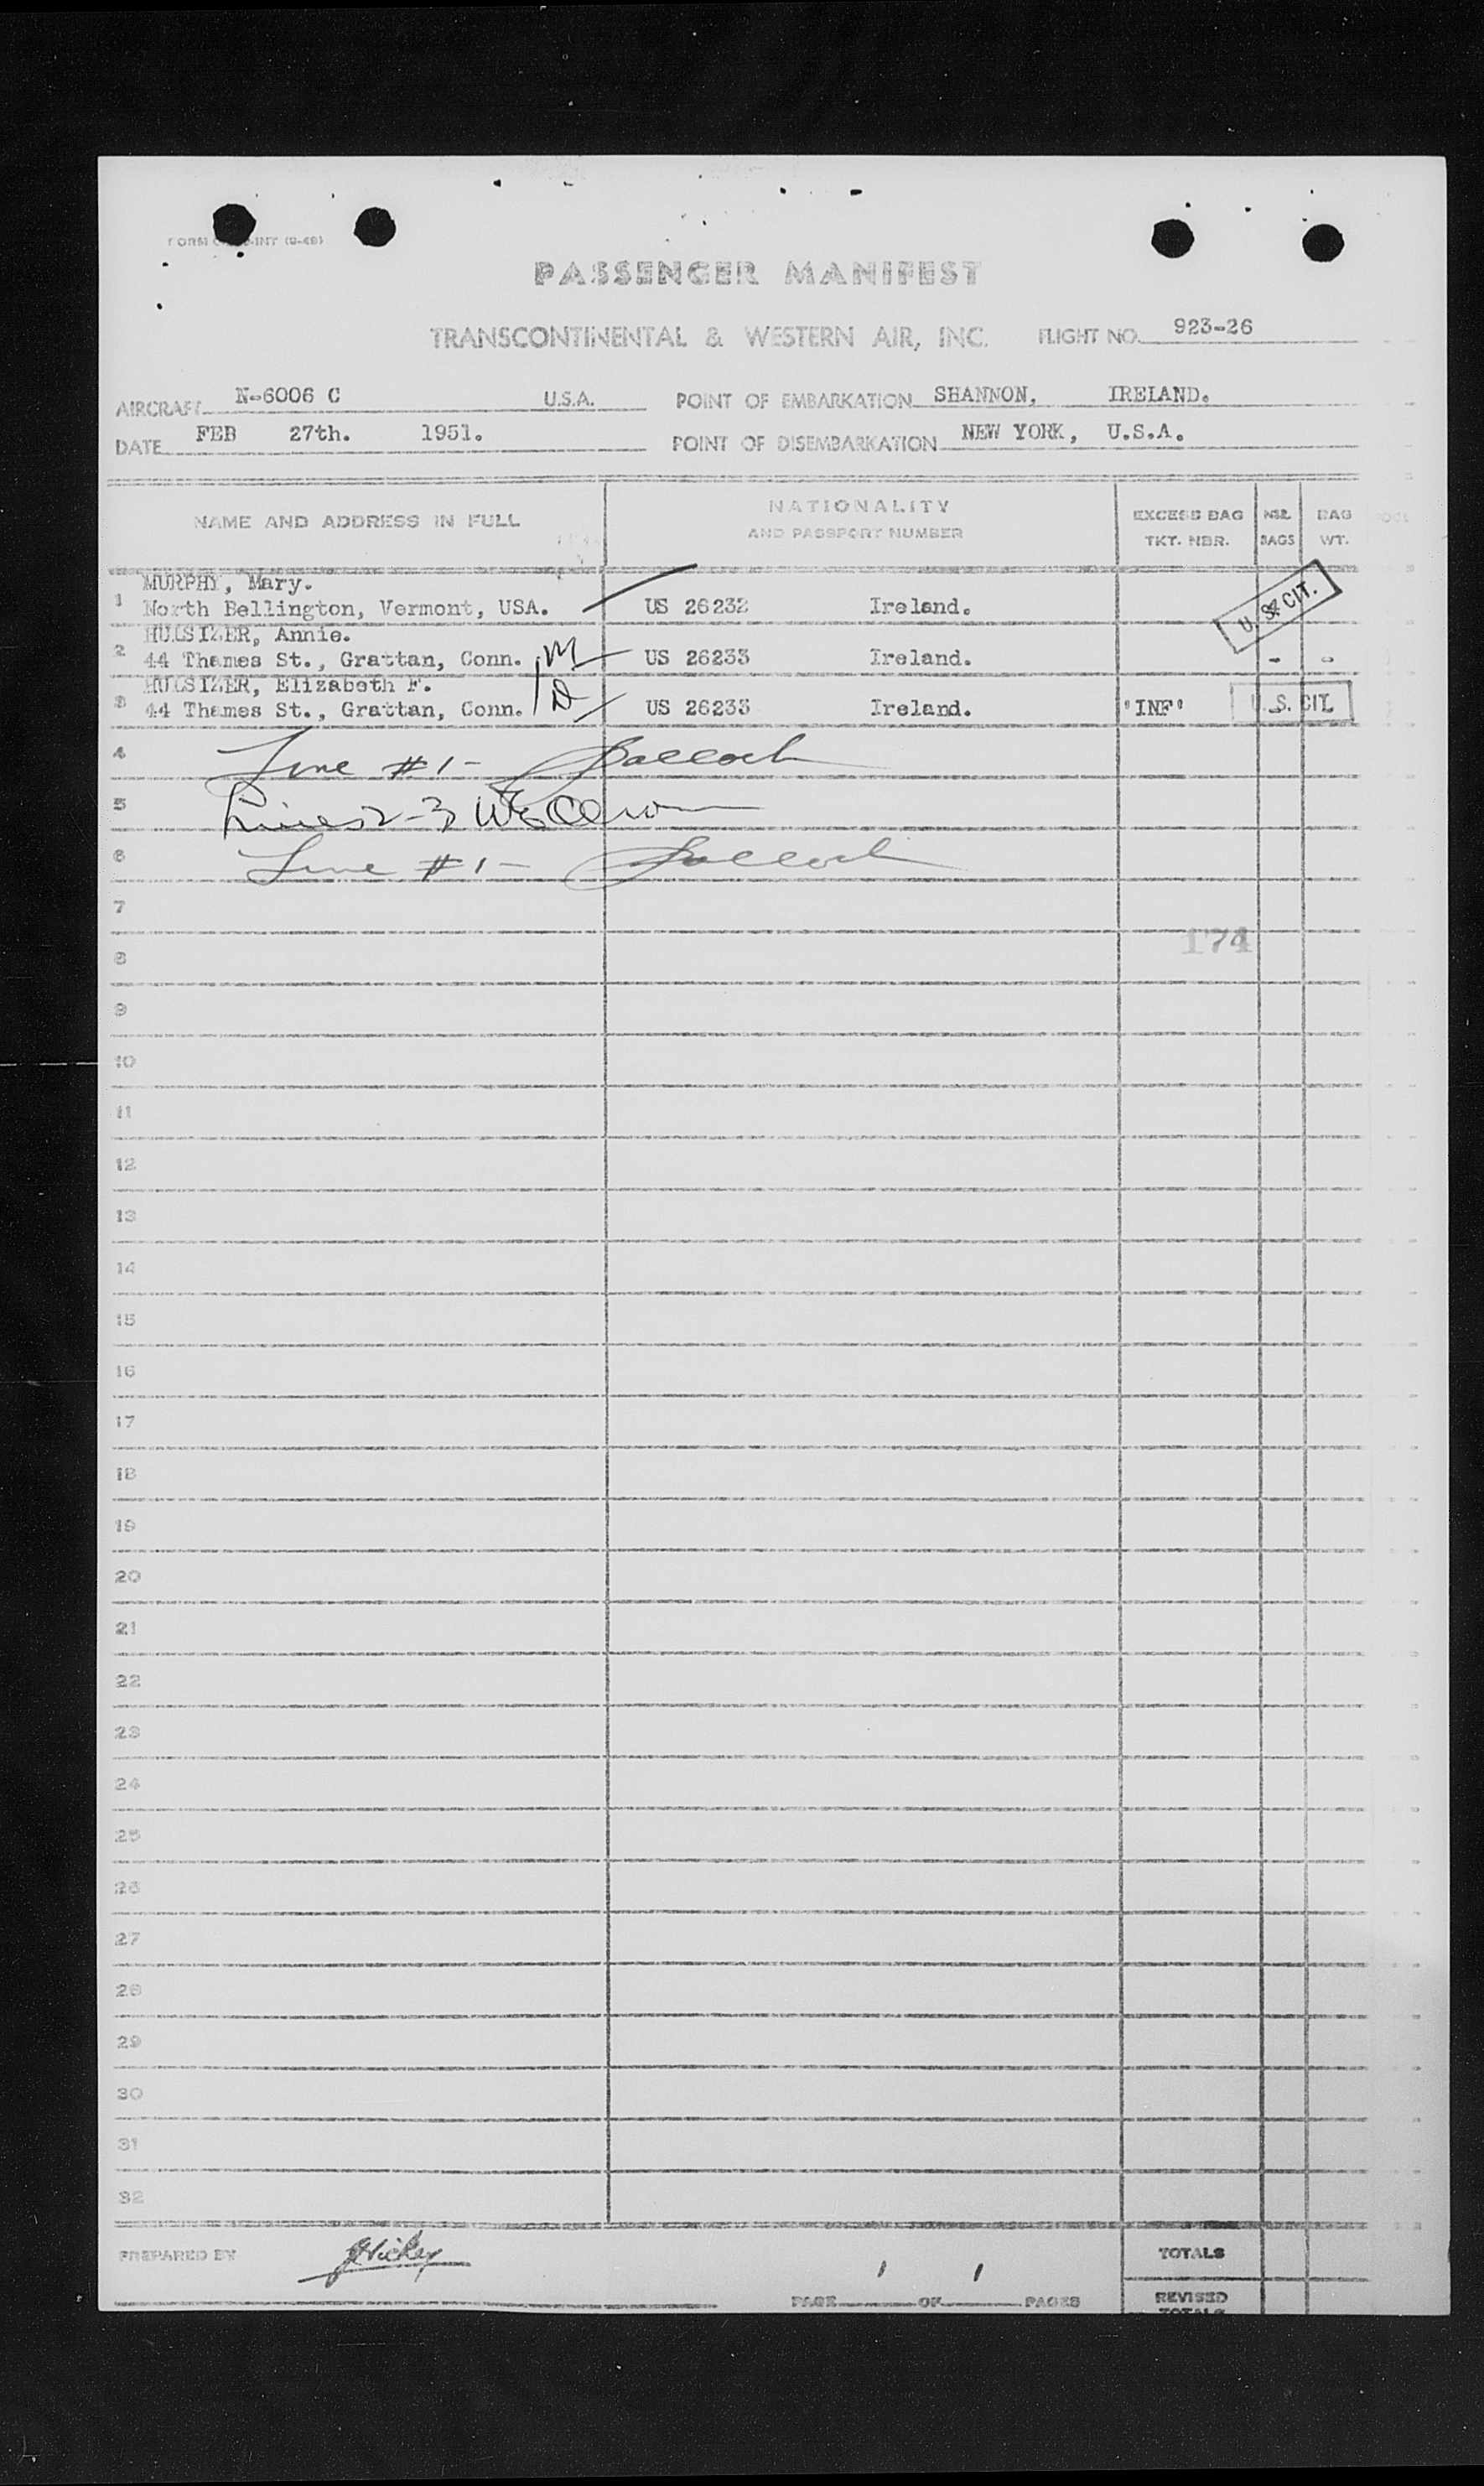 PASSENGER MANIFEST
TRANSCONTINENTAL & WESTERN AIR, INC. FLIGHT NO. 923-26
AIRCRAFT N-6006 C U.S.A. POINT OF EMBARKATION SHANNON, IRELAND.
DATE FEB 27th. 1951. POINT OF DISEMBARKATION NEW YORK, U.S.A.
NAME AND ADDRESS IN FULL NATIONALITY AND PASSPORT NUMBER EXCESS BAG TKT. NBR. NBR. BAGS BAG WT.
MURPHY, Mary.
1 North Bellington, Vermont, USA. US 26232 Ireland. U.S. CIT.
Annie.
2 44 Thames St., Grattan, Conn. M US 26233 Ireland. - -
Elizabeth F.
3 44 Thames St., Grattan, Conn. D US 26233 Ireland. "INF" U.S. CIT.
4 Line #1-
5 Lines 2-3
6 Line #1-
7
174
8
9
10
11
12
13
14
15
16
17
18
19
20
21
22
23
24
25
26
27
28
29
30
31
32
PREPARED BY TOTALS
PAGE 1 OF 1 PAGES REVISED
TOTALS